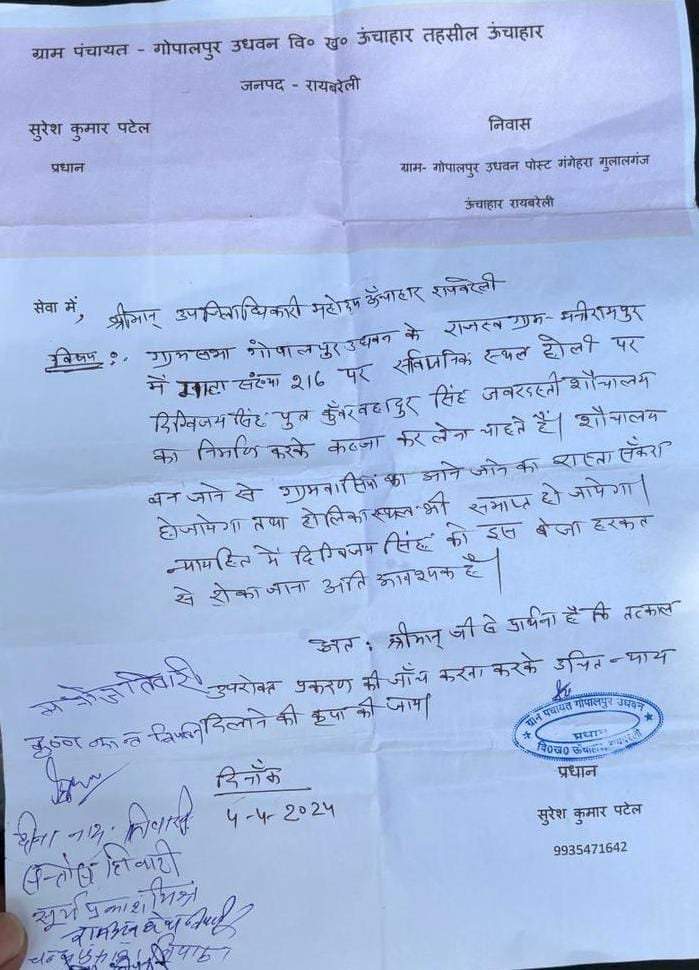 ग्राम पंचायत - गोपालपुर उधवन वि० ख० ऊंचाहार तहसील ऊंचाहार
जनपद - रायबरेली
सुरेश कुमार पटेल
निवास
प्रधान
ग्राम- गोपालपुर उधवन पोस्ट गंगेहरा गुलालगंज
ऊंचाहार रायबरेली
सेवा में, श्रीमान् उपजिलाधिकारी महोदय ऊँचाहार रायबरेली
विषय :- ग्रामसभा गोपालपुर उधवन के राजस्व ग्राम- मनीरामपुर
में गाटा संख्या 216 पर सार्वजनिक स्थल होली पर
दिग्विजय सिंह पुत्र कुँवर बहादुर सिंह जबरदस्ती शौचालय
का निर्माण करके कब्जा कर लेना चाहते हैं। शौचालय
बन जाने से ग्रामवासियों का आने जाने का रास्ता सँकरा
हो जायेगा तथा होलिका स्थल भी समाप्त हो जायेगा।
न्यायहित में दिग्विजय सिंह को इस बेजा हरकत
से रोका जाना अति आवश्यक है।
अतः श्रीमान् जी से प्रार्थना है कि तत्काल
उपरोक्त प्रकरण की जाँच करवा करके उचित न्याय
दिलाने की कृपा की जाय।
मनोज तिवारी
कृष्ण कान्त
दिनाँक
4-4-2024
ग्राम पंचायत गोपालपुर उधवन
प्रधान
वि०ख० ऊंचाहार, रायबरेली
प्रधान
सुरेश कुमार पटेल
9935471642
दीना नाथ तिवारी
सन्तोष तिवारी
सूर्य प्रकाश मिश्रा